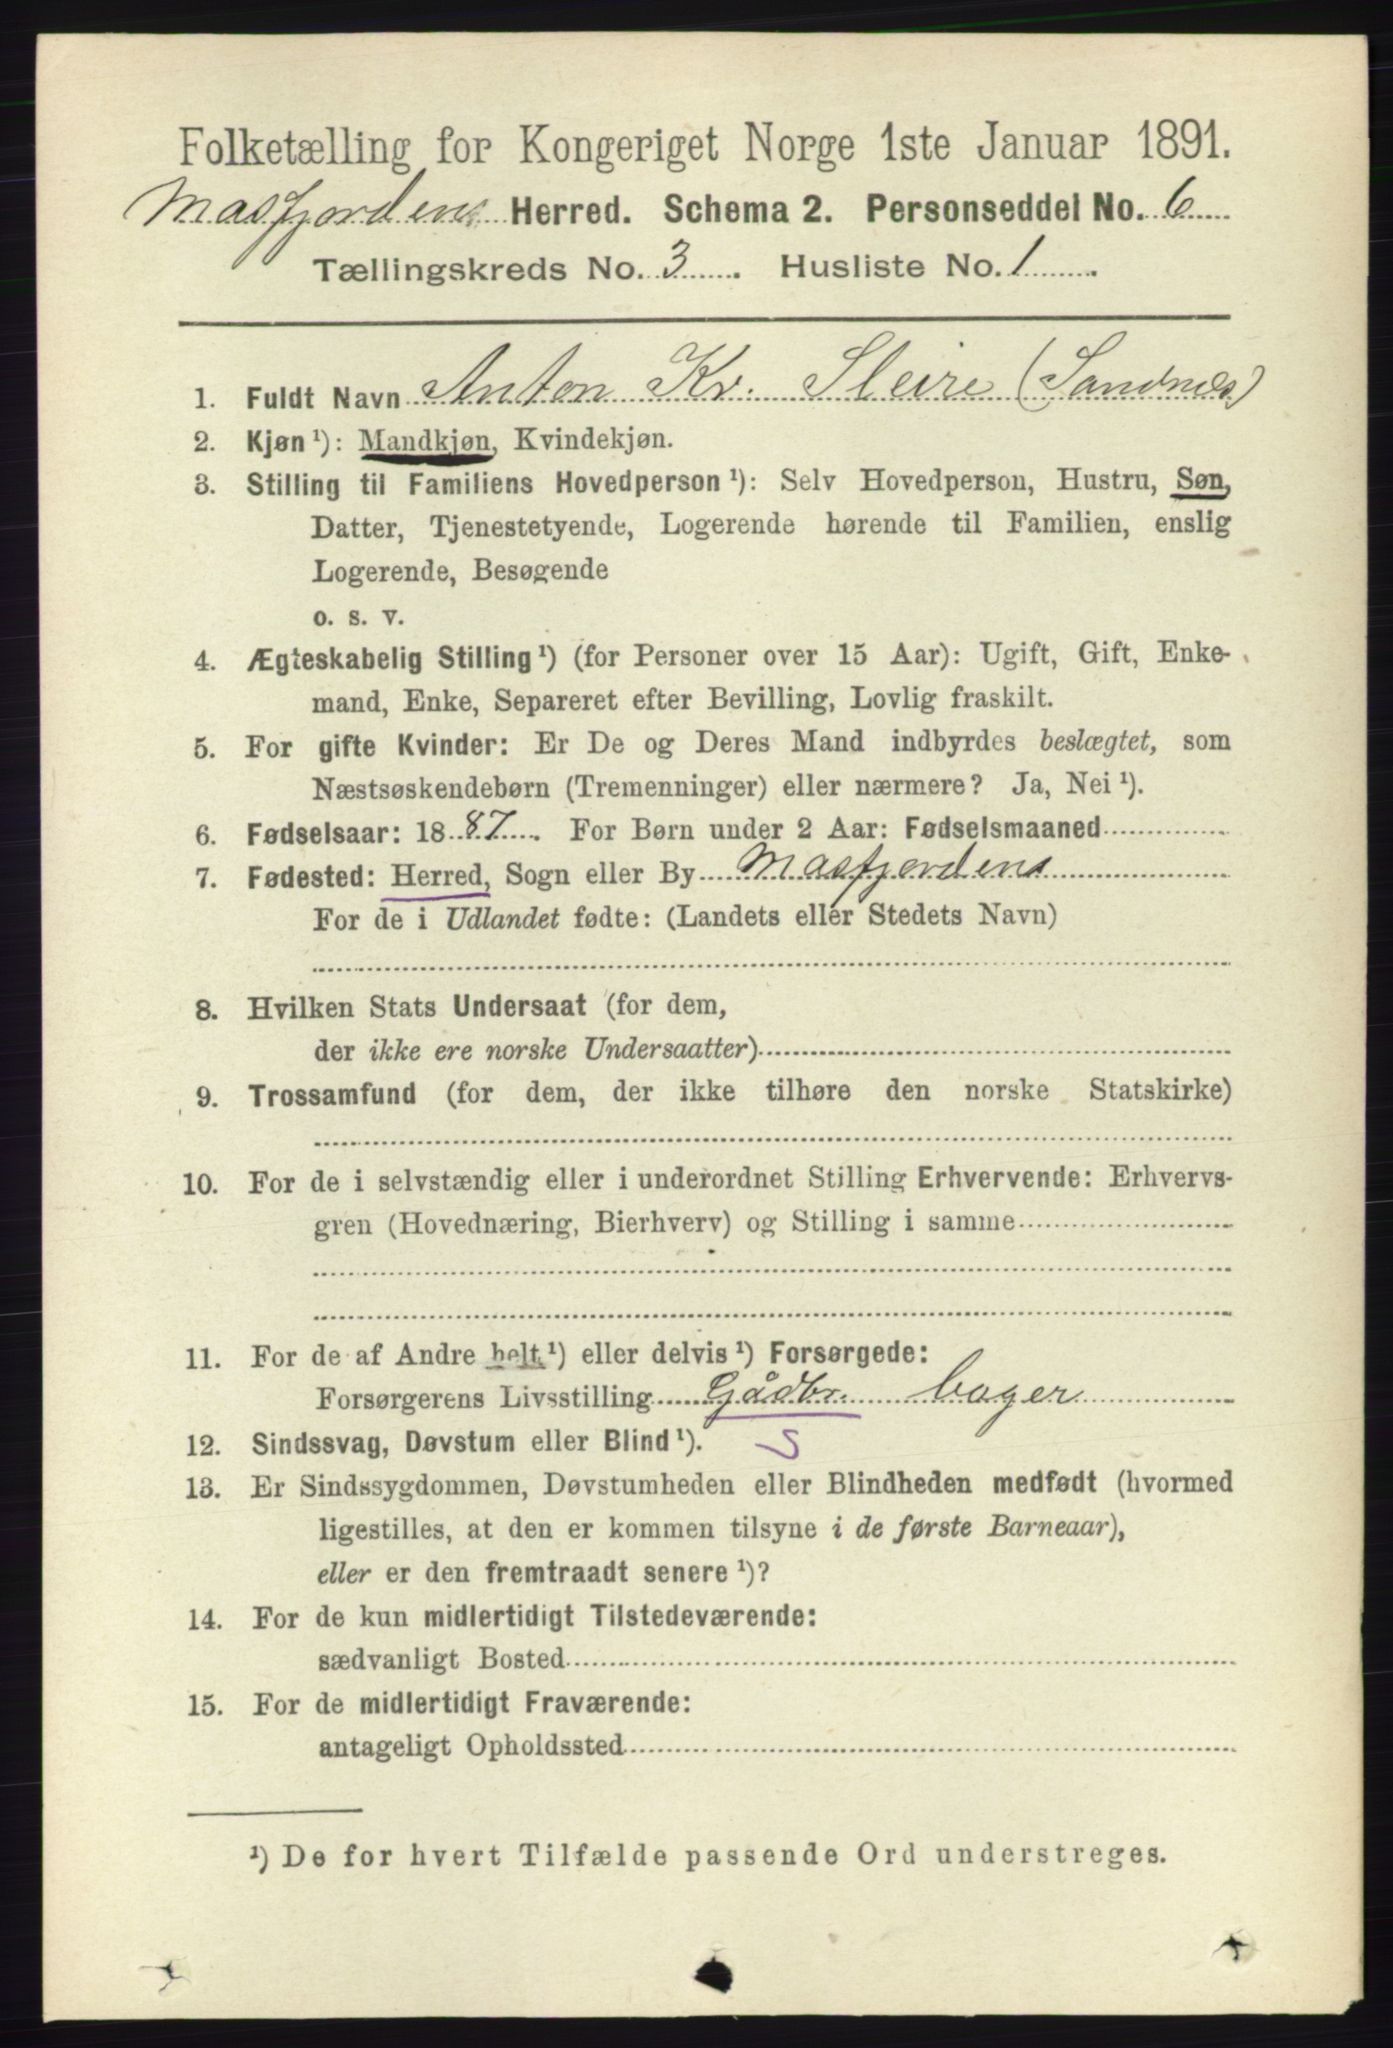 Folketælling for Kongeriget Norge 1ste Januar 1891.
Masfjordens Herred. Schema 2. Personseddel No. 6
Tællingskreds No. 3. Husliste No. 1.
1. Fuldt Navn Anton Kr. Sleire (Sandnes)
2. Kjøn ¹): Mandkjøn, Kvindekjøn.
3. Stilling til Familiens Hovedperson ¹): Selv Hovedperson, Hustru, Søn,
Datter, Tjenestetyende, Logerende hørende til Familien, enslig
Logerende, Besøgende
o. s. v.
4. Ægteskabelig Stilling ¹) (for Personer over 15 Aar): Ugift, Gift, Enke-
mand, Enke, Separeret efter Bevilling, Lovlig fraskilt.
5. For gifte Kvinder: Er De og Deres Mand indbyrdes beslægtet, som
Næstsøskendebørn (Tremenninger) eller nærmere? Ja, Nei ¹).
6. Fødselsaar: 1887. For Børn under 2 Aar: Fødselsmaaned
7. Fødested: Herred, Sogn eller By Masfjordens
For de i Udlandet fødte: (Landets eller Stedets Navn)
8. Hvilken Stats Undersaat (for dem,
der ikke ere norske Undersaatter)
9. Trossamfund (for dem, der ikke tilhøre den norske Statskirke)
10. For de i selvstændig eller i underordnet Stilling Erhvervende: Erhvervs-
gren (Hovednæring, Bierhverv) og Stilling i samme
11. For de af Andre helt ¹) eller delvis ¹) Forsørgede:
Forsørgerens Livsstilling Gådbr.
12. Sindssvag, Døvstum eller Blind ¹). S
13. Er Sindssygdommen, Døvstumheden eller Blindheden medfødt (hvormed
ligestilles, at den er kommen tilsyne i de første Barneaar),
eller er den fremtraadt senere ¹)?
14. For de kun midlertidigt Tilstedeværende:
sædvanligt Bosted
15. For de midlertidigt Fraværende:
antageligt Opholdssted
¹) De for hvert Tilfælde passende Ord understreges.